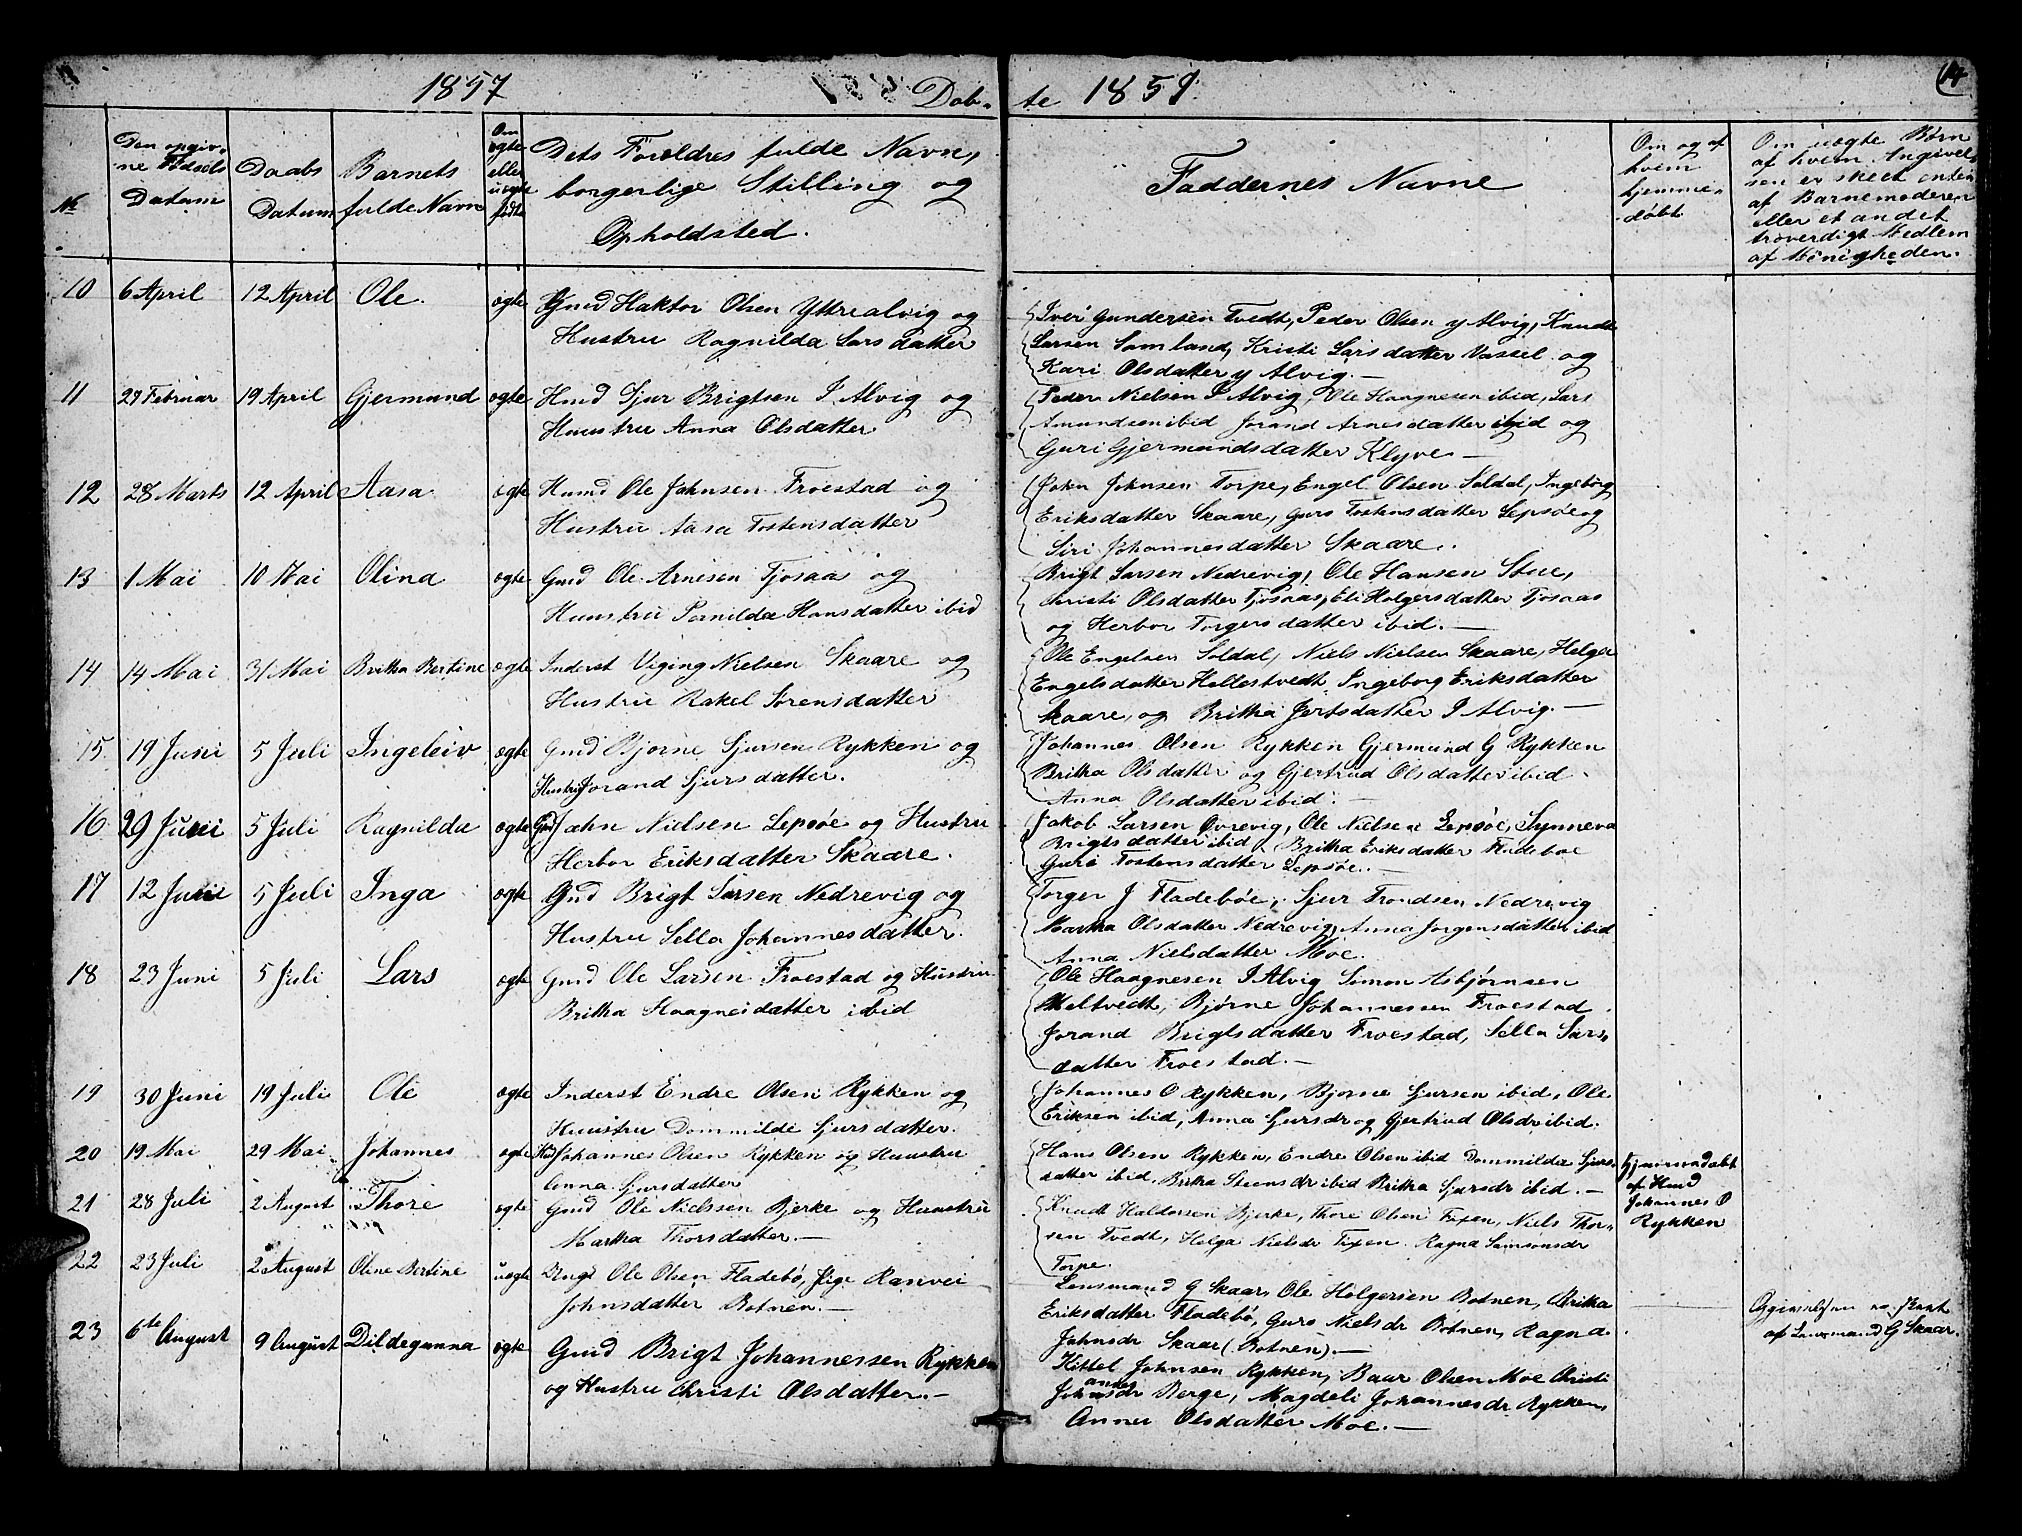 1857 Døb-
te 1857
14
No
Den opgiv-
ne Fødsels
Datum
Daabs
Datum
Barnets
fulde Navn
Om
ægte
eller
uægte
fødte
Dets Foreldres fulde Navne,
borgerlige Stilling og
Opholdsted.
Faddernes Navne
Om og af
hvem
hjemme-
døbt
Om uægte Børn
af hvem Angivel-
sen er skeet enten
af Barnemoderen
eller et andet
troverdigt Medlem
af Menigheden.
10 6 April 12 April Ole. ægte Gmd Haktor Olsen Yttrealvig og
Hustru Ragnilda Lars datter
Iver Gundersen Tvedt, Peder Olsen y Alvig, Knudt
Larsen Samland, Kristi Larsdatter Vassel og
Kari Olsdatter y Alvig. —
11 29 Februar 19 April Gjermund ægte Hmd Sjur Brigtsen I Alvig og
Huustru Anna Olsdatter
Peder Nielsen I Alvig, Ole Haagnesen ibid, Lars
Amundsen ibid Jorand Arnesdatter ibid og
Guri Gjermundsdatter Klyve —
12 28 Marts 12 April Aasa ægte Humd Ole Johnsen Froestad og
Hustru Aasa Tostensdatter
John Johnsen Torpe, Engel Olsen Soldal, Ingeborg
Eriksdatter Skaare, Guro Tostensdatter Lepsøe og
Siri Johannesdatter Skaare.
13 1 Mai 10 Mai Olina ægte Gmd Ole Arnesen Tjosaas og
Huustru Pernilda Hansdatter ibid
Brigt Larsen Nedrevig, Ole Hansen Stue,
Christi Olsdatter Tjosaas, Eli Holgersdatter Tjosaas
og Herbor Torgersdatter ibid. —
14 14 Mai 31 Mai Britha Bertine ægte Inderst Viging Nielsen Skaare og
Hustru Rakel Sørensdatter
Ole Engelsen Soldal, Niels Nielsen Skaare, Helga
Engelsdatter Hellestvedt Ingeborg Eriksdatter
Skaare, og Britha Jertsdatter I Alvig. —
15 19 Juni 5 Juli Ingeleiv ægte Gmd Bjørne Sjursen Rykken og
Hustru Jorand Sjursdatter.
Johannes Olsen Rykken Gjermund G Rykken
Britha Olsdatter og Gjertrud Olsdatter ibid
Anna Olsdatter ibid. —
16 29 Juni 5 Juli Ragnilda ægte Gmd John Nielsen Lepsøe og Hustru
Herbor Eriksdatter Skaare.
Jakob Larsen Øvrevig, Ole Nielsen Lepsøe, Synneva
Brigtsdatter ibid, Britha Eriksdatter Fladeboe
Guri Tostensdatter Lepsøe. —
17 12 Juni 5 Juli Inga ægte Gmd Brigt Larsen Nedrevig og
Hustru Sella Johannesdatter.
Torger J Fladebøe, Sjur Trondsen Nedrevig
Martha Olsdatter Nedrevig, Anna Jørgensdatter ibid
Anna Nielsdatter Moe.
18 23 Juni 5 Juli Lars ægte Gmd Ole Larsen Froestad og Hustru
Britha Haagnesdatter ibid
Ole Haagnesen I Alvig Simon Asbjørnsen
Meltvedt, Bjørne Johannessen Froestad
Jorand Brigtsdatter Froestad, Sella Lars-
datter Froestad. —
19 30 Juni 19 Juli Ole ægte Inderst Endre Olsen Rykken og
Huustru Dommilde Sjursdatter.
Johannes O Rykken, Bjørne Sjursen ibid, Ole
Eriksen ibid, Anna Sjursdr og Gjertrud Olsdr ibid.
20 19 Mai 29 Mai Johannes ægte Hmd Johannes Olsen Rykken og Huustru
Anna Sjursdatter
Hans Olsen Rykken, Endre Olsen ibid Dommilda Sjurs-
datter ibid, Britha Steensdr ibid Britha Sjursdr ibid. —
Hjemmedøbt
af Hmd
Johannes O
Rykken
21 28 Juli 2 August Thore ægte Gmd Ole Nielssen Bjerke og Huustru
Martha Thorsdatter. —
Knudt Haldorsen Bjerke, Thore Olsen Fixen, Niels Thor-
sen Tvedt, Helga Nielsdr Fixen Ragna Samsonsdr
Torpe.
22 23 Juli 2 August Oline Bertine uægte Ungk Ole Olsen Fladebø, Pige Ranvei
Johnsdatter Botnen. —
Lensmand G Skaar, Ole Holgersen Botnen, Britha
Eriksdatter Fladebø, Guro Nielsdr Botnen, Ragna
Johnsdr Skaar (Botnen). —
af Lensmand G Skaar.
23 6te August 9 August Dildegunna ægte Gmd Brigt Johannessen Rykken
og Hustru Christi Olsdatter. —
Kittel Johnsen Rykken, Baar Olsen Moe Christi
Johannesdr Berge, Magdeli Johannesdr Rykken,
Anna Olsdatter Moe. —